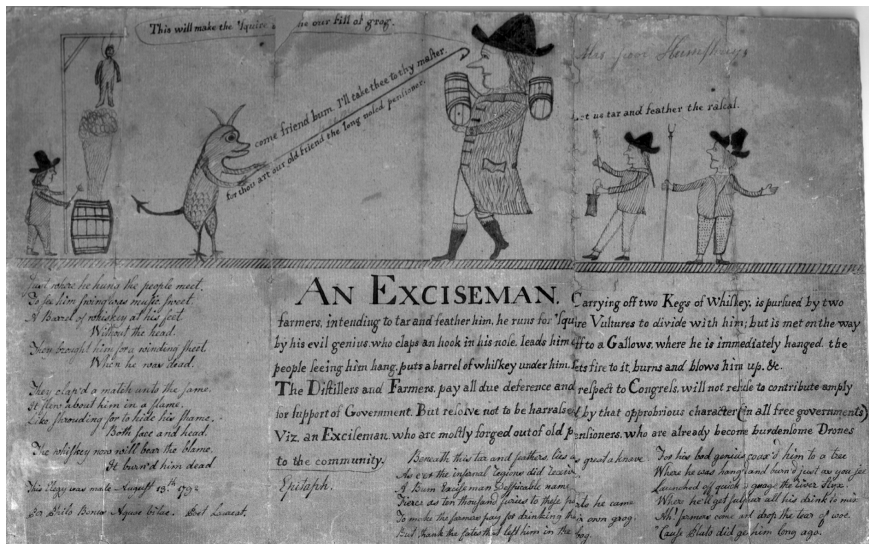 This will make the 'Squire. he our fill of grog.
Mrs Humphreys
come friend bum, I'll take thee to thy master.
for thou art our old friend the long nosed pensioner.
Let us tar and feather the rascal.
Just where he hung the people meet.
To see him swing was music sweet.
A Barrel of whiskey at his feet
Without the head.
They brought him for a winding sheet
When he was dead.
They clap'd a match unto the same.
It flew about him in a flame.
Like shrouding for to hide his shame.
Both face and head.
The whiskey now will bear the blame.
It burn'd him dead
This Elegy was made August 13th 179
Per Philo Bonus Aquae Vitae.
AN EXCISEMAN.
Carrying off two Kegs of Whiskey, is pursued by two
farmers, intending to tar and feather him, he runs for 'Squire Vultures to divide with him; but is met on the way
by his evil genius who claps an hook in his nose, leads him off to a Gallows, where he is immediately hanged. the
people seeing him hang, puts a barrel of whiskey under him, sets fire to it, burns and blows him up. &c.
The Distillers and Farmers, pay all due deference and respect to Congress, will not refuse to contribute amply
for support of Government. But resolve not to be harrassed by that opprobrious character (in all free governments)
Viz. an Exciseman, who are mostly forged out of old pensioners, who are already become burdensome Drones
to the community.
Epitaph.
Beneath this tar and feathers lies as great a knave
As e'er the infernal legions did receive
Of Bum Exciseman despicable name
Fierce as ten thousand furies to these parts he came
To make the farmers pay for drinking their own grog.
But thank the fates that left him in the bog.
For his bad genius coax'd him to a tree
Where he was hang'd and burn'd just as you see
Launched off quick
Where he'll get sulphur all his drink to mix
Ah! farmers come and drop the tear of woe.
'Cause did go him long ago.